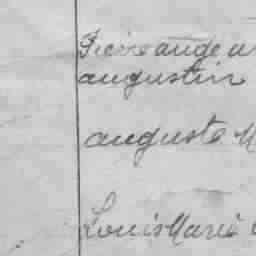 Pierre ange
augustin
auguste M
Louis Marie